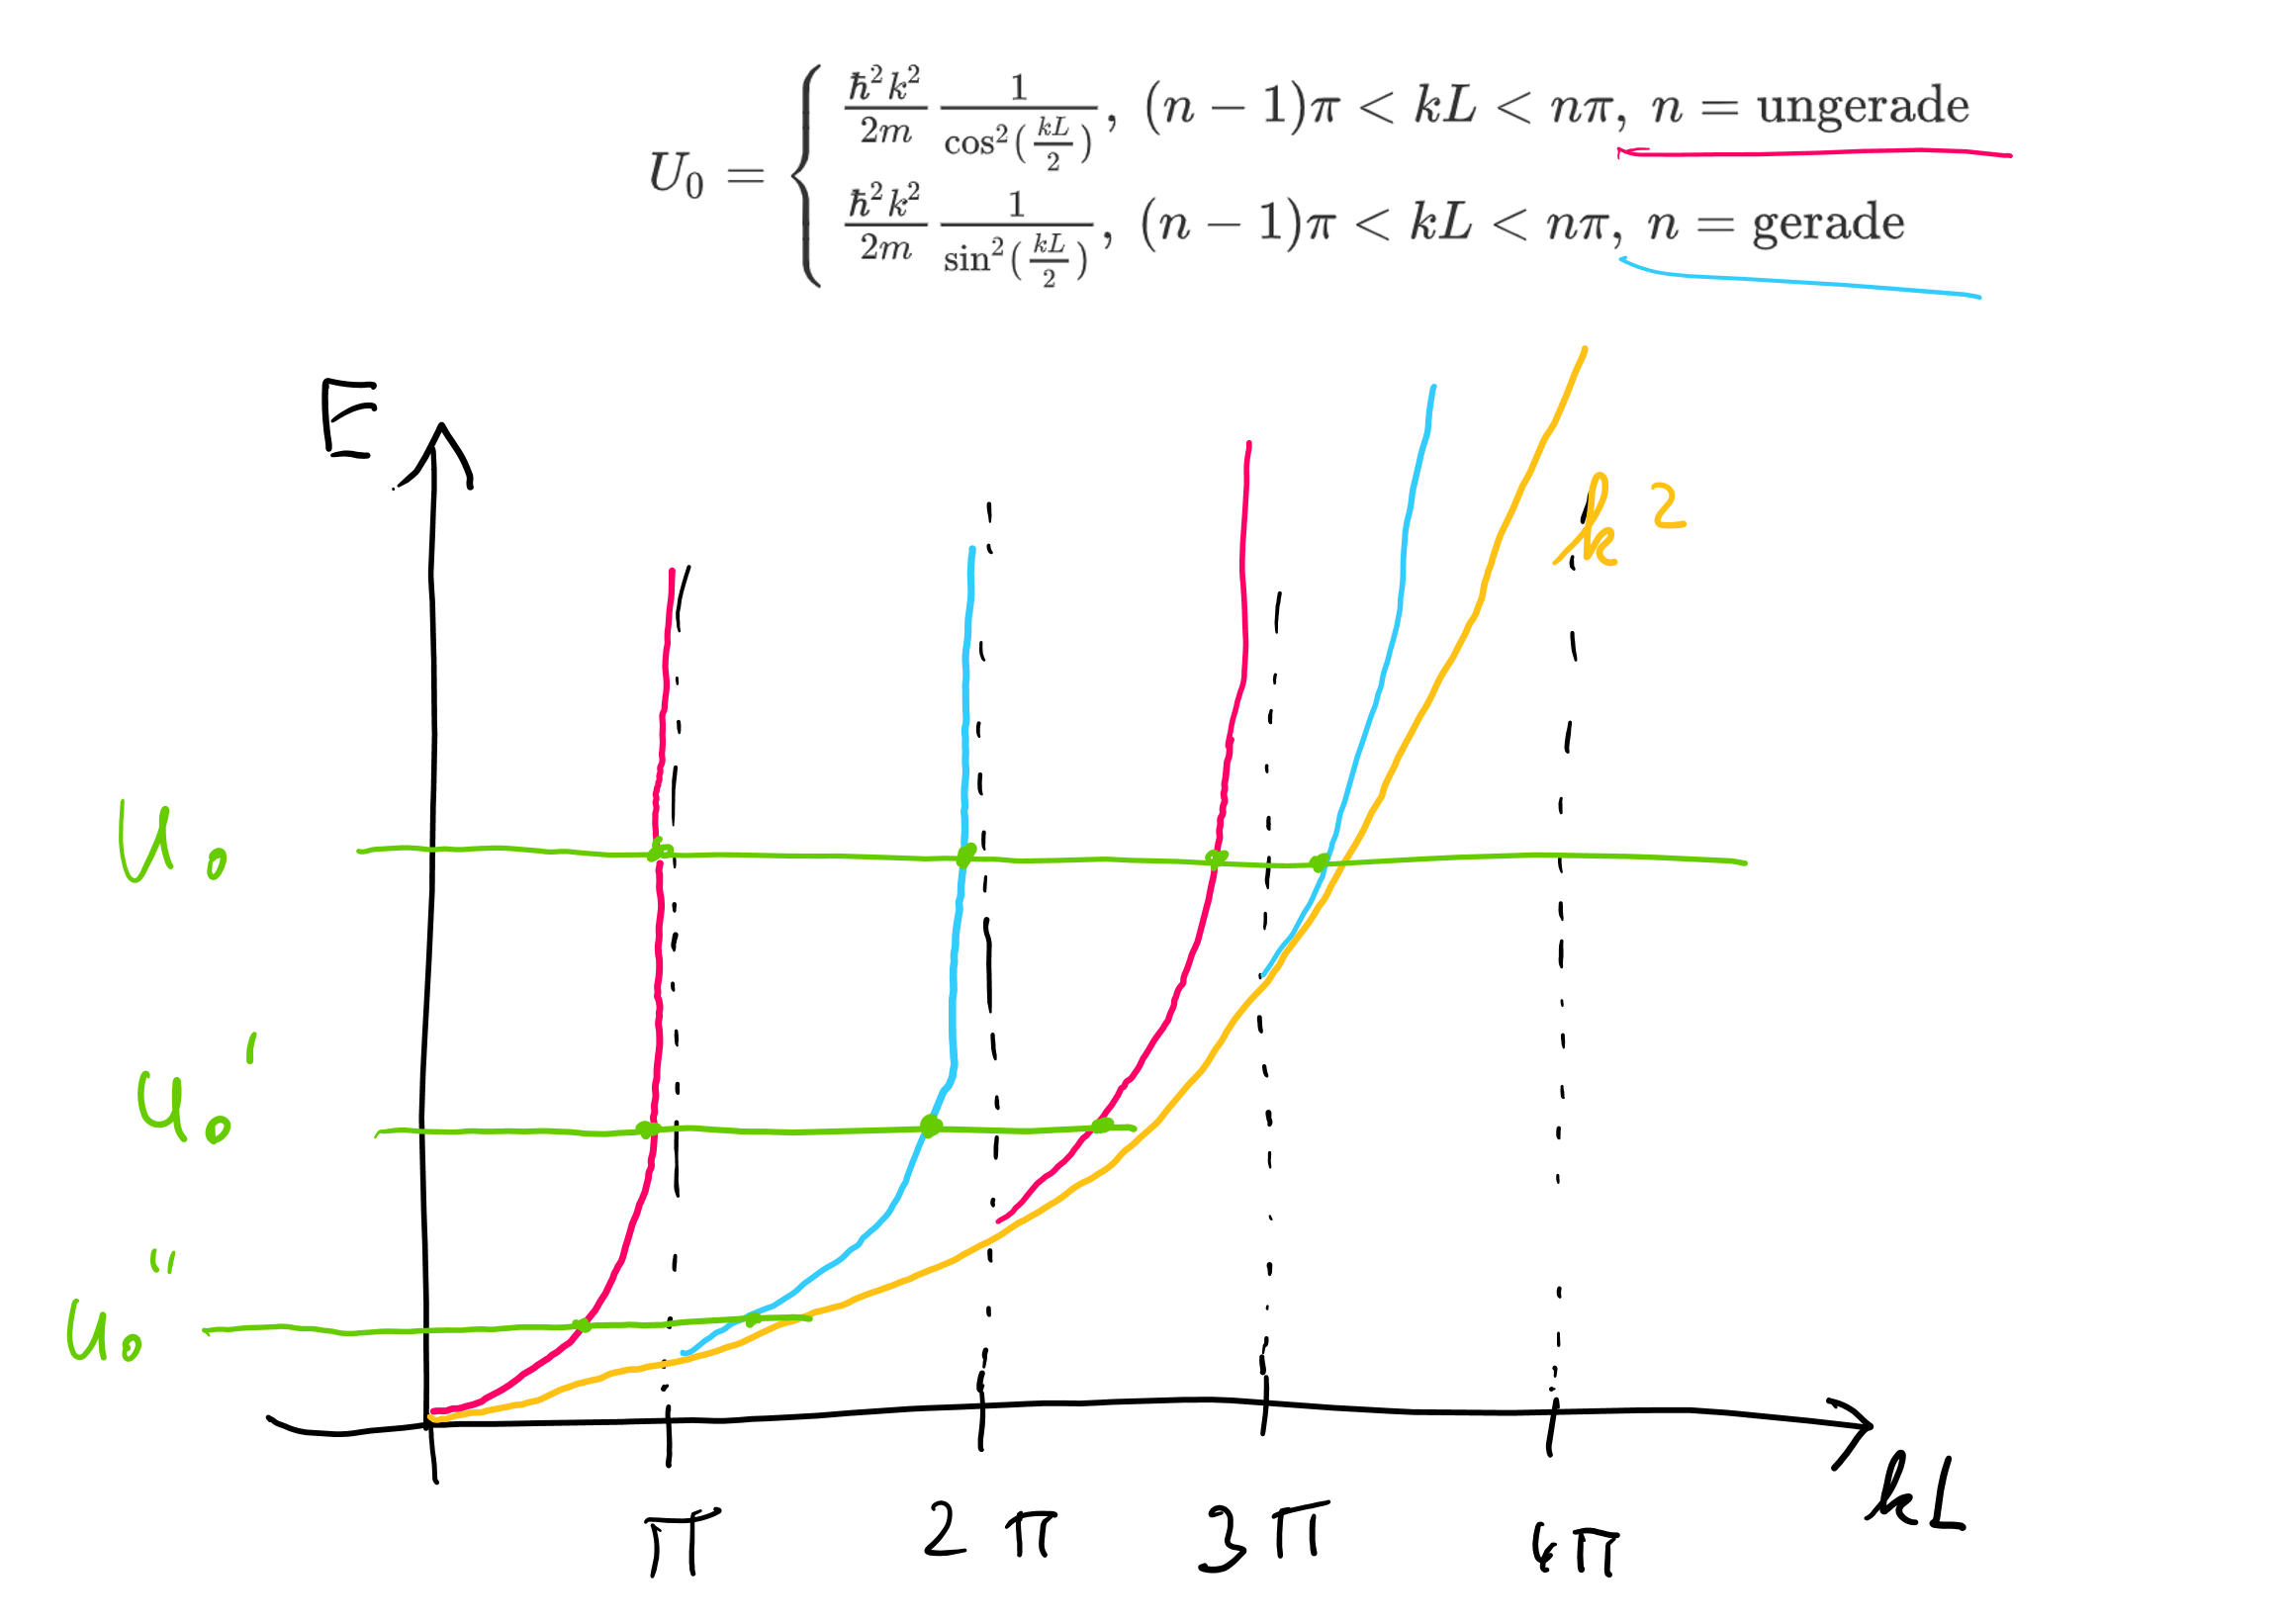 U₀ = { ħ²k²/2m 1/cos²(kL/2), (n − 1)π < kL < nπ, n = ungerade
ħ²k²/2m 1/sin²(kL/2), (n − 1)π < kL < nπ, n = gerade
E
k²
U₀
U₀'
U₀''
π 2π 3π 4π
kL